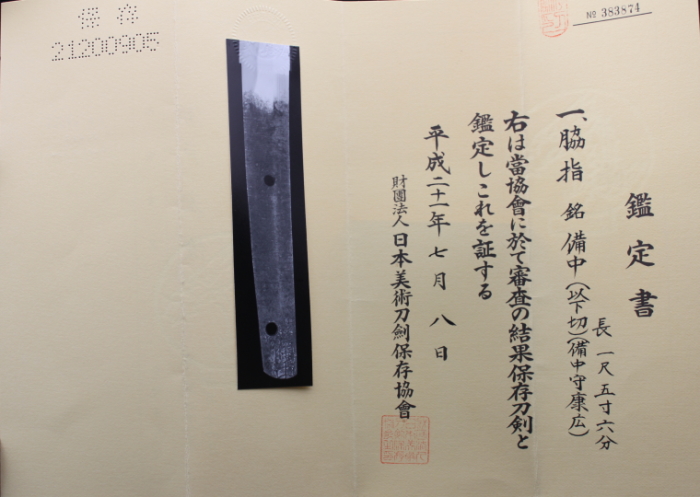 鑑定書
一、脇指 銘 備中(以下切)(備中守康広)
長 一尺五寸六分
右は當協會に於て審査の結果保存刀剣と
鑑定しこれを証する
平成二十一年七月八日
財團法人 日本美術刀劍保存協會
№ 383874
保存
21200905